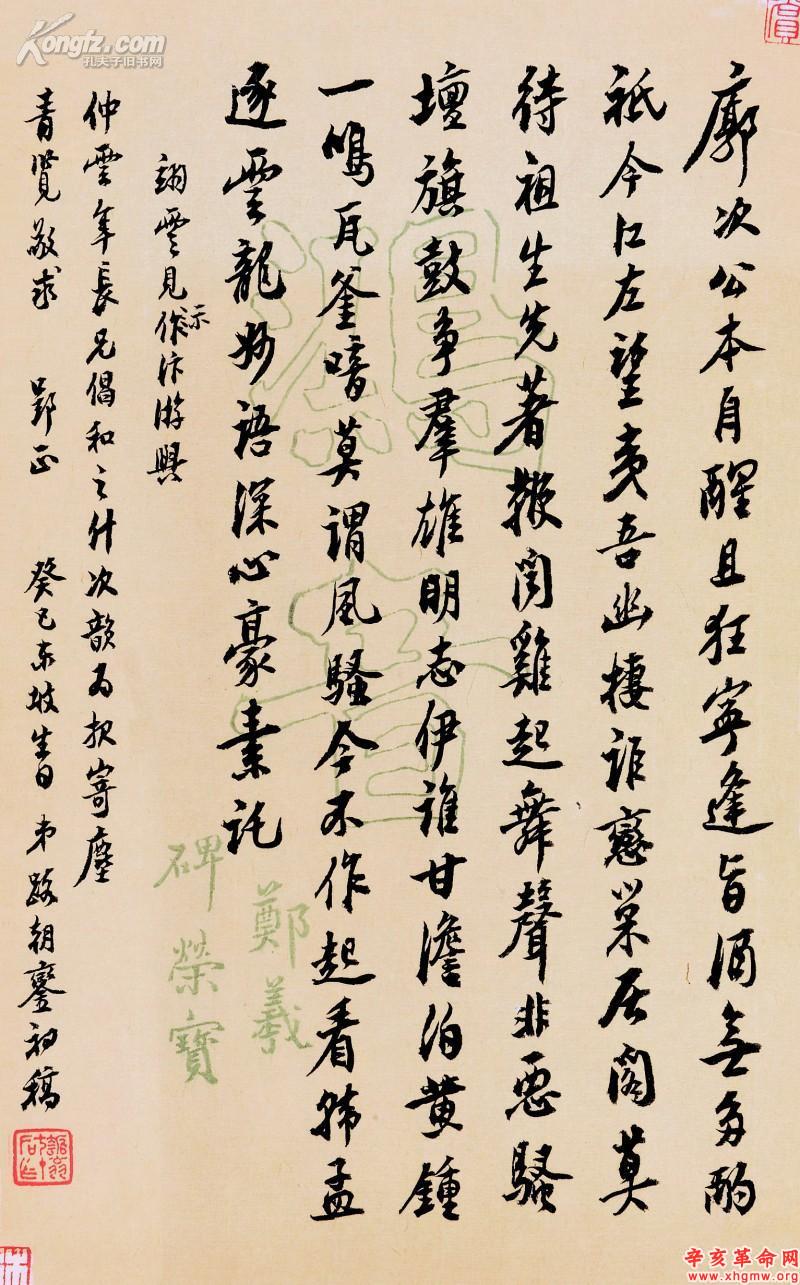 廓次公本自醒且狂寧逢旨酒無多酌
祇今江左望夷吾幽棲詎戀巢居閣莫
待祖生先著鞭聞雞起舞聲非惡騷
壇旗鼓爭羣雄明志伊誰甘澹泊黄鍾
一鳴瓦釜喑莫謂風騷今不作起看韓孟
逐雲龍妙語深心豪素託
翊雲見示作汴游與
仲雲年長兄倡和之什次韻為報寄塵
青覽敬求 郢正 癸巳東坡生日 弟路朝鑾初稿
鄭羲
碑 榮寶
Kongfz.com
孔夫子旧书网
辛亥革命网
www.xhgmw.org